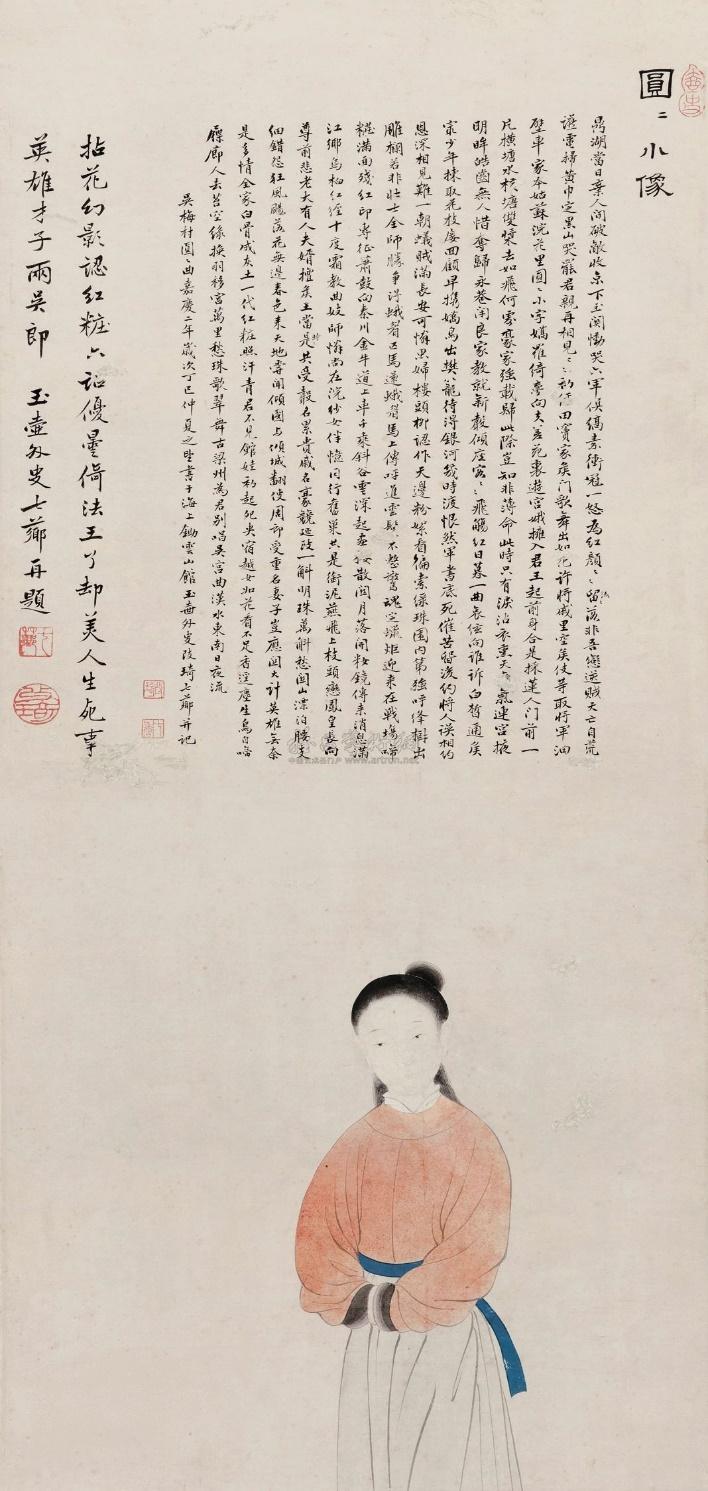 圓〻小像
鼎湖當日棄人間破敵收京下玉關慟哭六軍俱縞素衝冠一怒為紅顏〻〻留落非吾戀逆賊天亡自荒
讌電掃黃巾定黑山哭罷君親再相見〻〻初經田竇家矦門歌舞出如花許將戚里空矦伎等取將軍油
壁車家本姑蘇浣花里圓〻小字嬌羅綺夢向夫差苑裏遊宮娥擁入君王起前身合是採蓮人門前一
片橫塘水橫塘雙槳去如飛何處豪家強載歸此際豈知非薄命此時只有淚沾衣熏天〻氣連宮掖
明眸皓齒無人惜奪歸永巷閉良家教就新聲傾座客〻〻飛觴紅日暮一曲哀絃向誰訴白皙通矦
㝡少年揀取花枝屢回顧早攜嬌鳥出樊籠待得銀河幾時渡恨煞軍書底死催苦留後約將人誤相約
恩深相見難一朝蟻賊滿長安可憐思婦樓頭柳認作天邊粉絮看徧索綠珠圍內第強呼絳樹出
雕欄若非壯士全師勝爭得蛾眉匹馬還蛾眉馬上傳呼進雲鬟不整驚魂定蠟炬迎來在戰場啼
糚滿面殘紅印專征蕭鼓向秦川金牛道上車千乘斜谷雲深起畫樓散關月落開粧鏡傳來消息滿
江鄉烏桕紅經十度霜教曲妓師憐尚在浣紗女伴憶同行舊巢共是銜泥燕飛上枝頭變鳳皇長向
尊前悲老大有人夫婿擅矦王當時是共受聲名累貴戚名豪競延致一斛明珠萬斛愁關山漂泊腰支
細錯怨狂風颺落花無邊春色來天地嘗聞傾國与傾城翻使周郎受重名妻子豈應關大計英雄無奈
是多情全家白骨成灰土一代紅粧照汗青君不見館娃初起鴛央宿越女如花看不足香逕塵生鳥自啼
屧廊人去苔空綠換羽移宮萬里愁珠歌翠舞古梁州為君別唱吳宮曲漢水東南日夜流
吳梅村圓〻曲嘉慶二年歲次丁巳仲夏之望書于海上鋤雲山館玉壺外史改琦七薌并記
拈花幻影認紅粧六詔優曇倚法王了却美人生死事
英雄才子兩吳郎 玉壺外史七薌再題